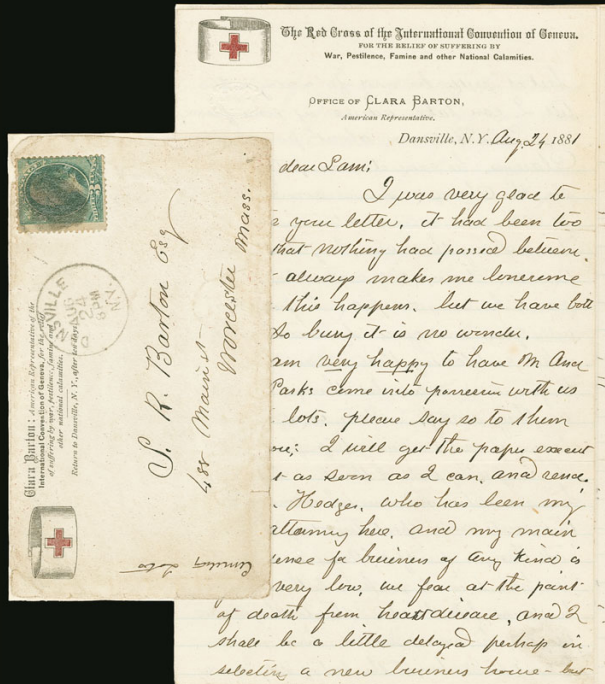 The Red Cross of the International Convention of Geneva.
FOR THE RELIEF OF SUFFERING BY
War, Pestilence, Famine and other National Calamities.
OFFICE OF CLARA BARTON,
American Representative.
Dansville, N.Y. Aug. 24 1881
dear Sam:
I was very glad to
your letter, it had been too
that nothing had passed between.
always makes me lonesome
this happens. but we have both
so busy it is no wonder.
am very happy to have Mr And
Parks come into possession with us
lots. please say so to them
I will get the paper execut
as soon as I can, and send.
Hedges, who has been my
attorney here, and my main
for business of any kind is
very low, we fear at the point
of death from heart disease, and I
shall be a little delayed perhaps in
selecting a new business home - but
3 CENTS
SVILLE
AUG
24
6 PM
N.Y.
Clara Barton: American Representative of the
International Convention of Geneva, for the relief
of suffering by war, pestilence, famine and
other national calamities.
Return to Dansville, N. Y., after ten days.
S. R. Barton Esq
488 Main st
Worcester Mass.
Cemetery Lots